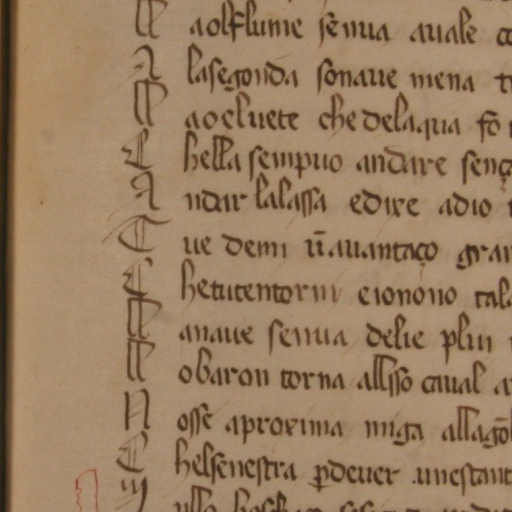 M aolflume senua auale co
A lasegonda sonaue mena t
M aoeluete che delaqua fo
C hella sempuo andare senç
A ndar lalassa edixe adio
T ue demi ū auantaço gran
C hetutentorni eionono tala
M anaue senua delie plui
M obaron torna allsso caual a
N osse aproxima miga allago
C helsenestra ꝑdeuer unestant